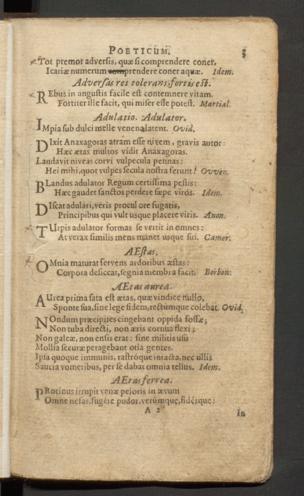 POETICUM. 3
Tot premor adversis, quæ si comprendere coner,
Icariæ numerum comprendere coner aquæ. Idem.
Adversas res tolerans, fortis est.
REbus in angustis facile est contemnere vitam.
Fortiter ille facit, qui miser esse potest. Martial.
Adulatio. Adulator.
IMpia sub dulci melle venena latent. Ovid.
DIxit Anaxagoras atram esse nivem, gravis autor:
Hæc ætas multos vidit Anaxagoras.
Laudavit niveas corvi vulpecula pennas:
Hei mihi, quot vulpes secula nostra ferunt! Owen.
BLandus adulator Regum certissima pestis:
Hæc gaudet sanctos perdere sæpe virós. Idem.
DIscat adulari, veris procul ore fugatis,
Principibus qui vult usque placere viris. Anon.
TUrpis adulator formas se vertit in omnes:
At verax similis mens manet usque sui. Camer.
AEstas.
OMnia maturat fervens ardoribus æstas:
Corpora desiccat, segnia membra facit. Borbon:
AEtas aurea.
AUrea prima sata est ætas, quæ vindice nullo,
Sponte sua, sine lege fidem, rectumque colebat. Ovid.
NOndum præcipites cingebant oppida fossæ;
Non tuba directi, non æris cornua flexi;
Non galeæ, non ensis erat: sine militis usu
Mollia securæ peragebant otia gentes.
Ipsa quoque immunis, rastróque intacta, nec ullis
Saucia vomeribus, per se dabat omnia tellus. Idem.
AEtas ferrea.
PRotinus irrupit venæ pejoris in ævum
Omne nefas, fugêre pudor, verúmque, fidésque:
A 2 In